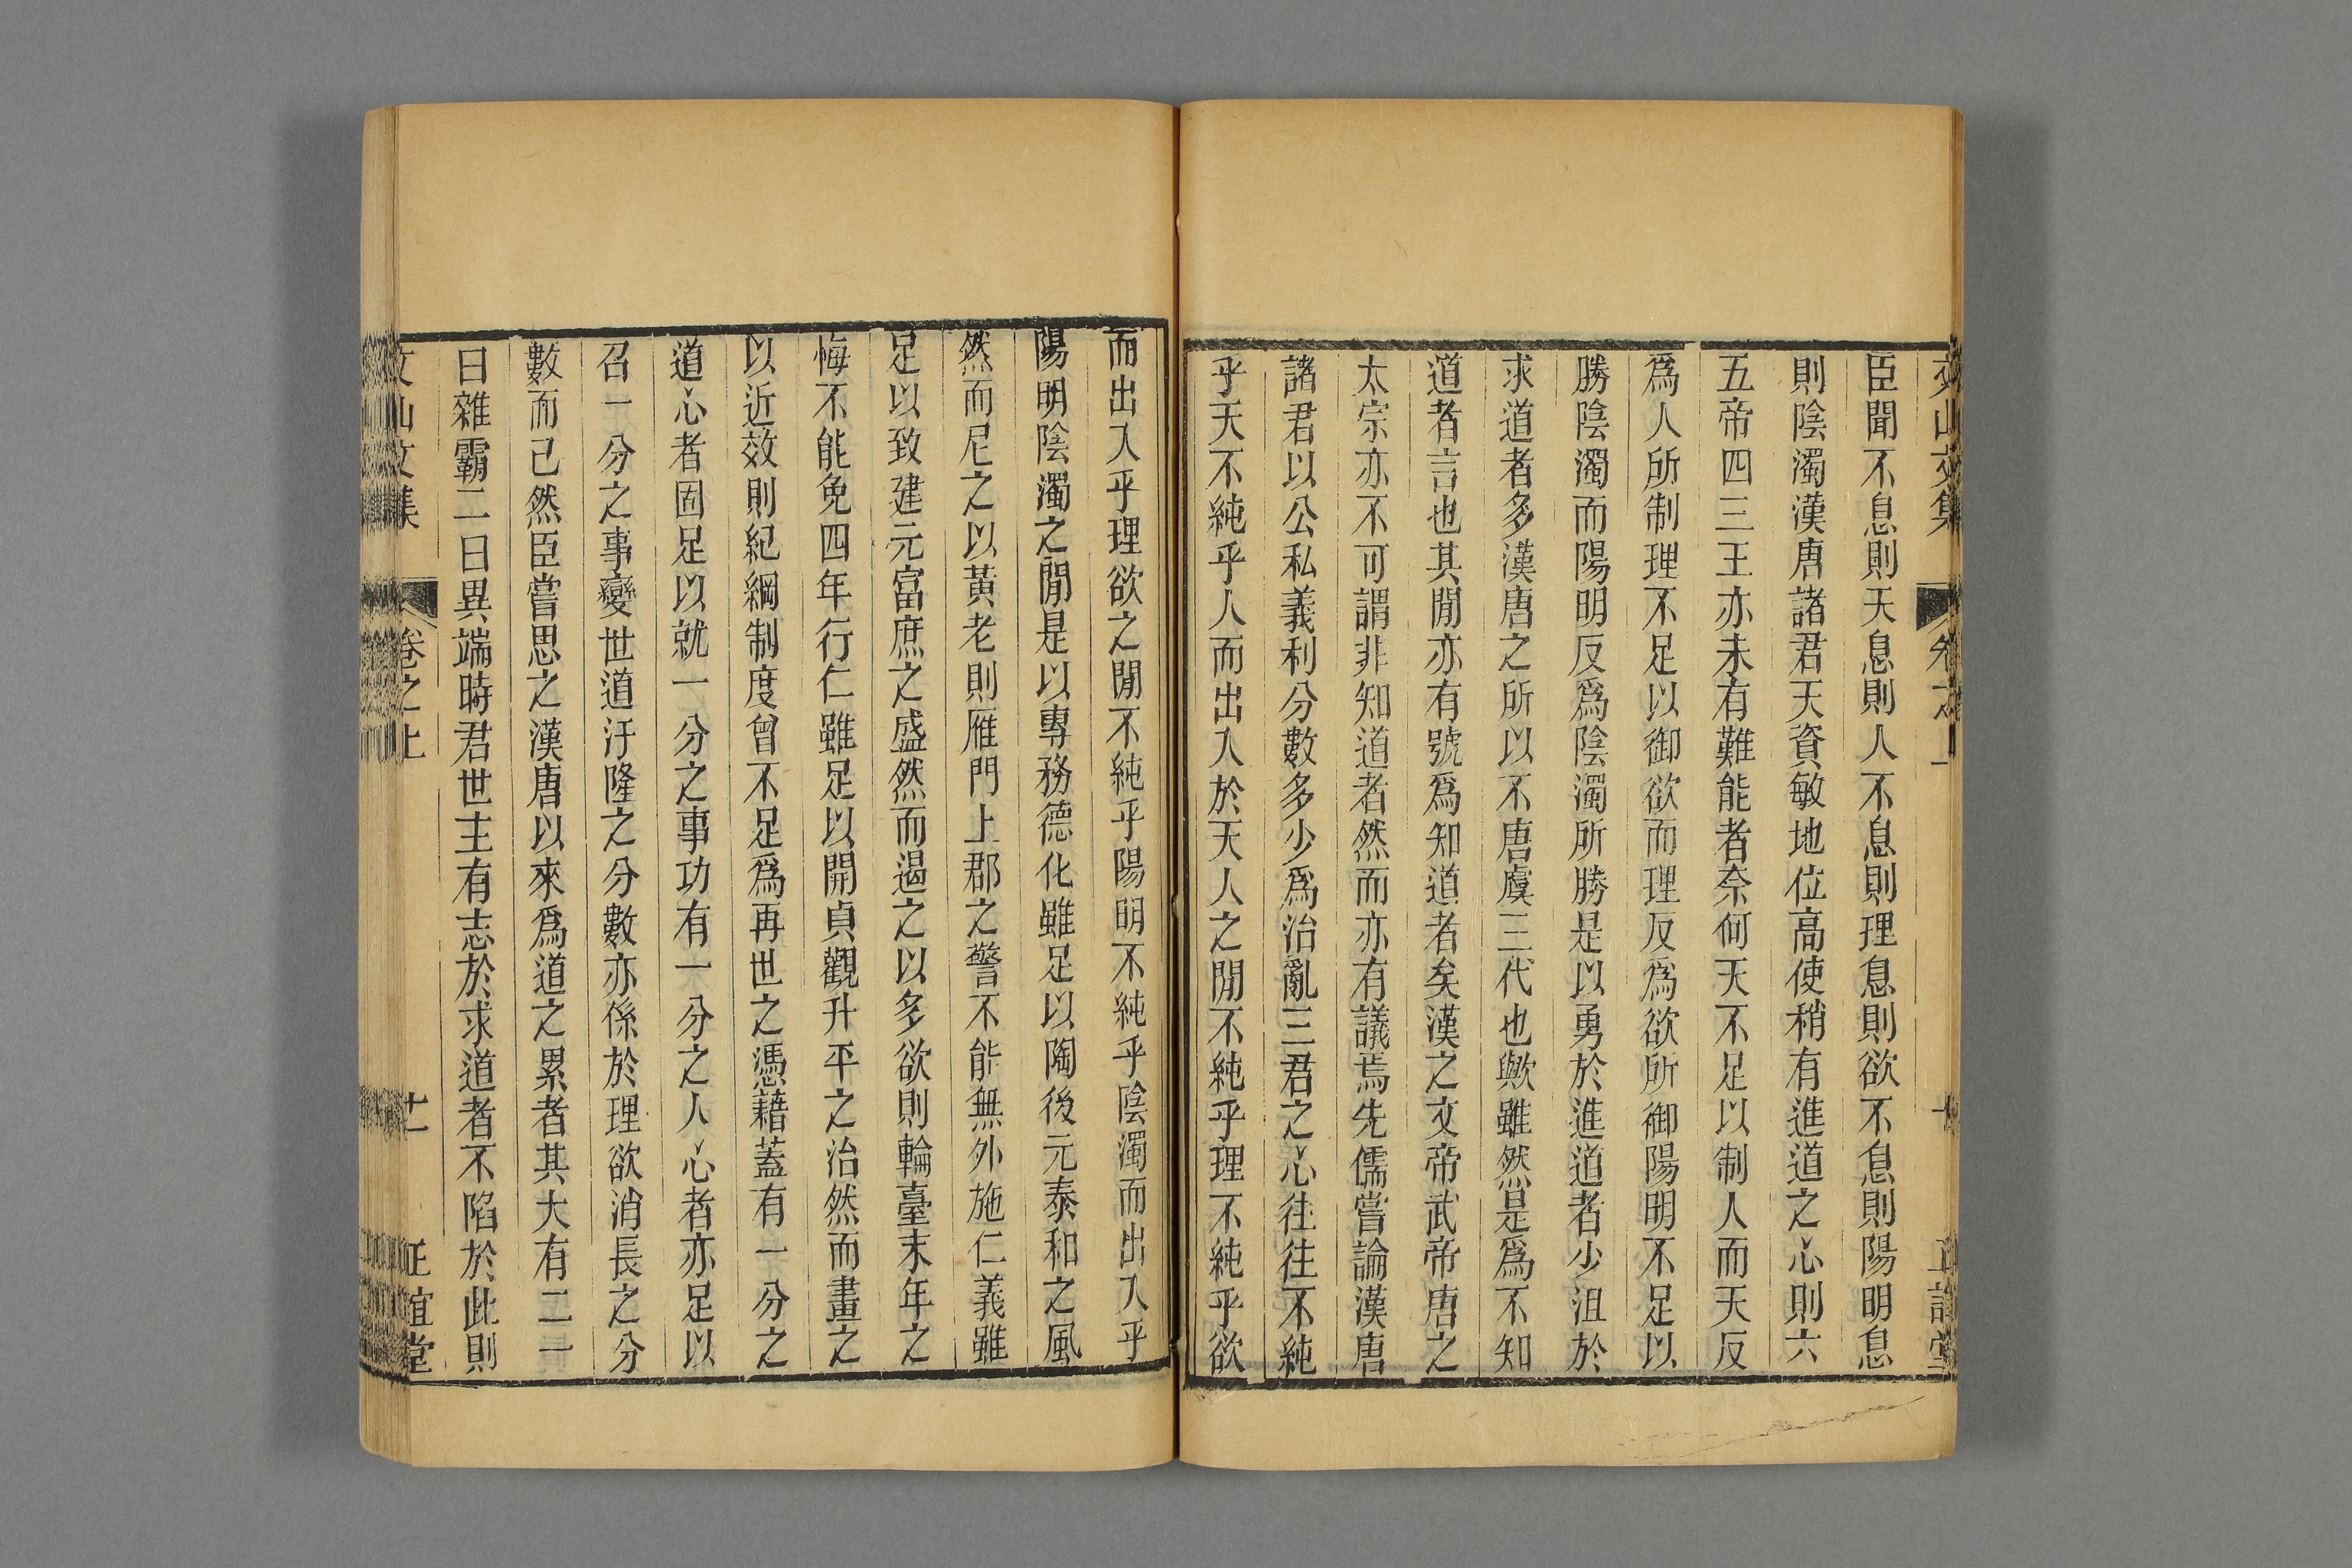 臣聞不息則天息則人不息則理息則欲不息則陽明息
則陰濁漢唐諸君天資敏地位高使稍有進道之心則六
五帝四三王亦未有難能者奈何天不足以制人而天反
爲人所制理不足以御欲而理反爲欲所御陽明不足以
勝陰濁而陽明反爲陰濁所勝是以勇於進道者少沮於
求道者多漢唐之所以不唐虞三代也歟雖然是爲不知
道者言也其閒亦有號爲知道者矣漢之文帝武帝唐之
太宗亦不可謂非知道者然而亦有議焉先儒嘗論漢唐
諸君以公私義利分數多少爲治亂三君之心往往不純
乎天不純乎人而出入於天人之閒不純乎理不純乎欲
而出入乎理欲之閒不純乎陽明不純乎陰濁而出入乎
陽明陰濁之閒是以專務德化雖足以陶後元泰和之風
然而尼之以黃老則雁門上郡之警不能無外施仁義雖
足以致建元富庶之盛然而遏之以多欲則輪臺末年之
悔不能免四年行仁雖足以開貞觀升平之治然而畫之
以近效則紀綱制度曾不足爲再世之憑藉蓋有一分之
道心者固足以就一分之事功有一分之人心者亦足以
召一分之事變世道汙隆之分數亦係於理欲消長之分
數而已然臣嘗思之漢唐以來爲道之累者其大有二一
曰雜霸二曰異端時君世主有志於求道者不陷於此則
文山文集 卷之上 十一 正誼堂